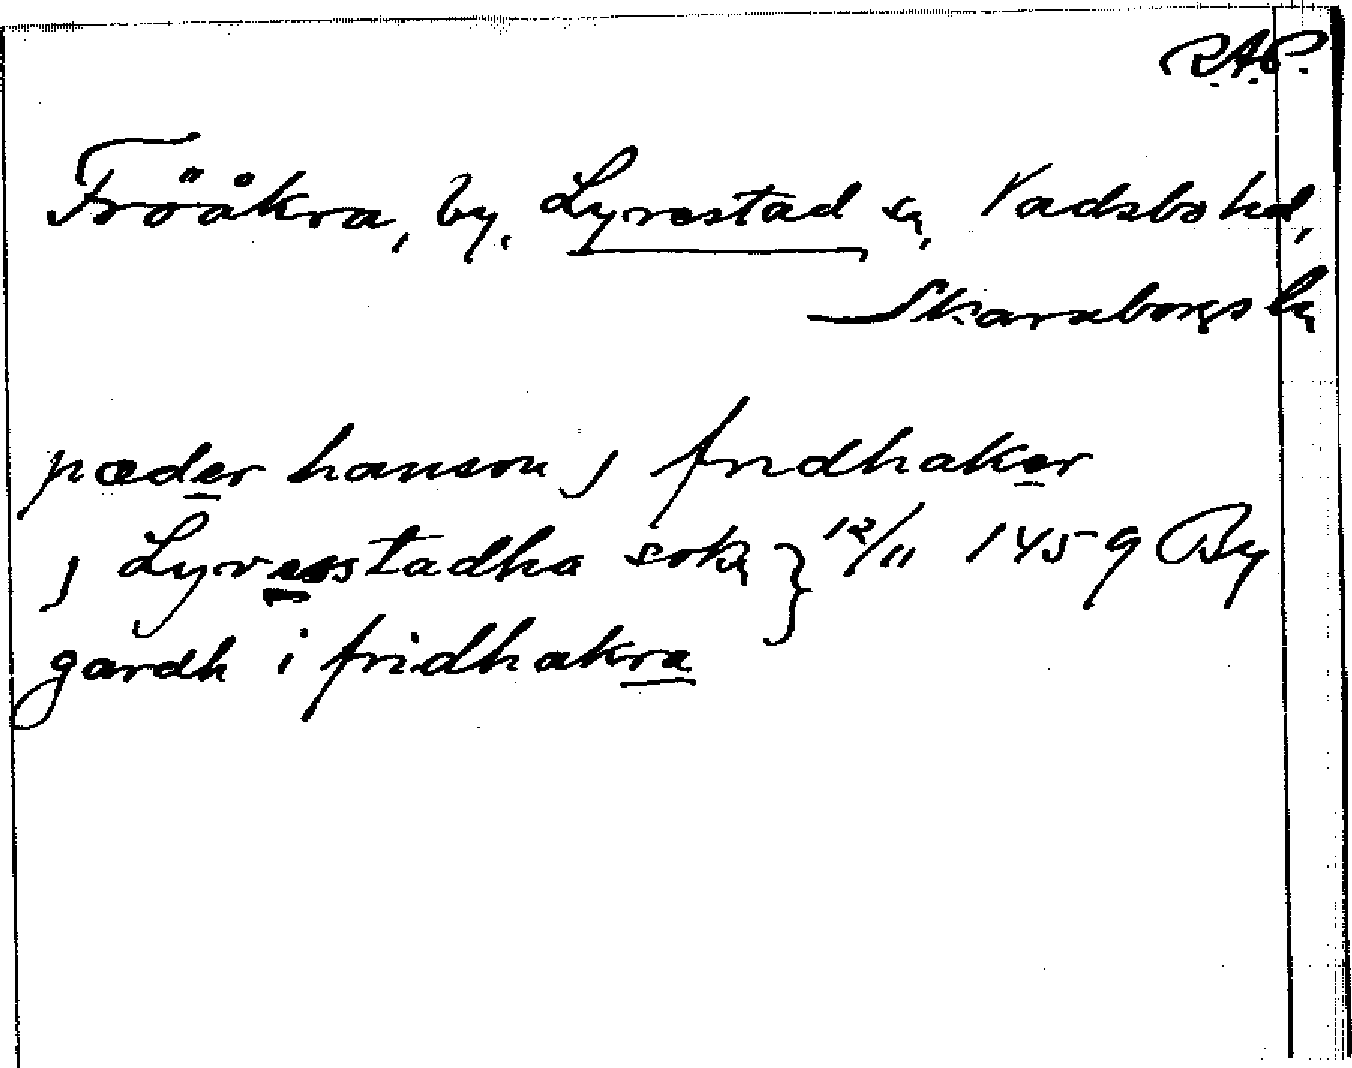 R.A.P.
Frööåkra, by, Lyrestad sn, Vadsbo hd,
Skaraborgs ln
pæder hanson j fridhaker
j Lyrestadha sokn } 12/11 1459 By
gardh i fridhakra